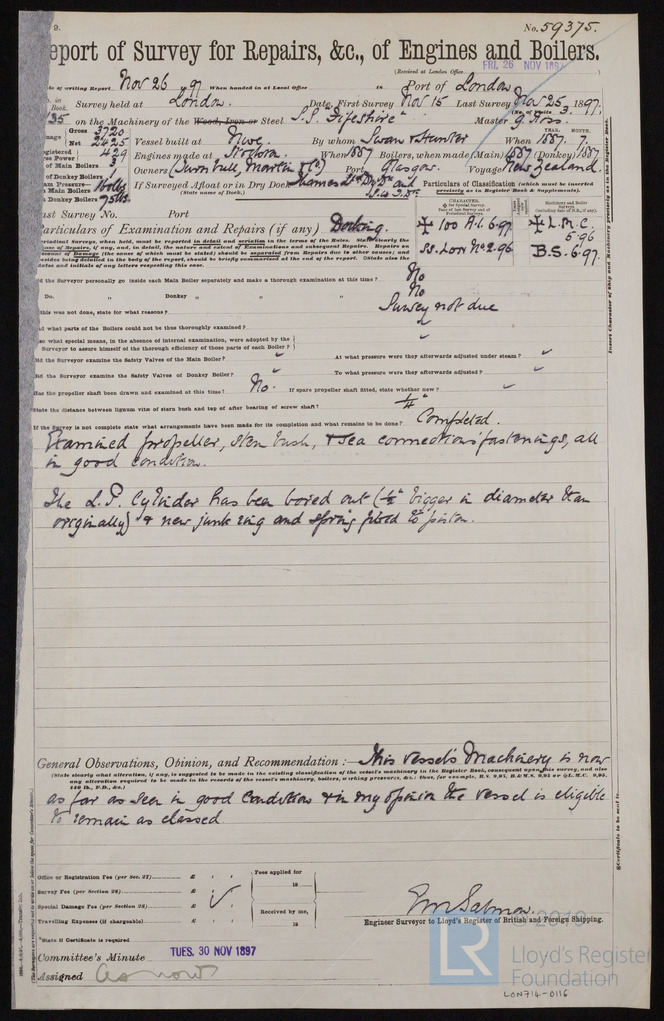 No. 59375.
Report of Survey for Repairs, &c., of Engines and Boilers.
FRI. 26 NOV 1897
(Received at London Office
of writing Report Nov 26 97 When handed in at Local Office 18 Port of London
Survey held at London. Date, First Survey Nov 15 Last Survey Nov 25 1897.
on the Machinery of the Wood, Iron or Steel S.S. "Fifeshire" Master G. Ross.
Gross 3720
Net 2425
Vessel built at Nwc. By whom Swan & Hunter When 1887. 7.
YEAR. MONTH.
Registered Horse Power 429
Engines made at When 1887 Boilers, when made (Main) 1887 (Donkey) 1887
of Main Boilers 3
Owners (Turnbull, Martin & Co) Port Glasgow. Voyage New Zealand.
of Donkey Boilers
Main Boilers 160lb
If Surveyed Afloat or in Dry Dock
(State name of Dock.)
Donkey Boilers 75lb.
Particulars of Classification (which must be inserted precisely as in Register Book & Supplements).
Last Survey No. Port
CHARACTER.
✠ 100 A.1. 6.97
✠ L.M.C. 5.96
SS. Lon No 2.96
B.S. 6.97.
Particulars of Examination and Repairs (if any) Docking.
Did the Surveyor personally go inside each Main Boiler separately and make a thorough examination at this time? No
Do. Donkey " " " No
If this was not done, state for what reasons? Survey not due
And what parts of the Boilers could not be thoroughly examined? "
And what special means, in the absence of internal examination, were adopted by the
Surveyor to assure himself of the thorough efficiency of those parts of each Boiler? "
Did the Surveyor examine the Safety Valves of the Main Boiler? " At what pressure were they afterwards adjusted under steam? "
Did the Surveyor examine the Safety Valves of Donkey Boiler? " To what pressure were they afterwards adjusted? "
Has the propeller shaft been drawn and examined at this time? No. If spare propeller shaft fitted, state whether new? "
State the distance between lignum vitæ of stern bush and top of after bearing of screw shaft? 1/4"
If the Survey is not complete state what arrangements have been made for its completion and what remains to be done? Completed.
Examined propeller, stern bush, & sea connections fastenings, all
in good condition.
The L.P. Cylinder has been bored out (1/2" bigger in diameter than
originally) & new junk ring and spring fitted to piston.
General Observations, Opinion, and Recommendation :— This vessel's Machinery is now
(State clearly what alteration, if any, is suggested to be made in the existing classification of the vessel's machinery in the Register Book, consequent upon this survey, and also
any alteration required to be made in the records of the vessel's machinery, boilers, working pressures, &c.: thus, for example, B.S. 9,95, B.&M.S. 9,95 or ✠L.M.C. 9,95,
140 lb., F.D., &c.)
as far as seen in good condition & in my opinion the vessel is eligible
to remain as classed
Office or Registration Fee (per Sec. 27) £ : :
Survey Fee (per Section 28) £ : :
Special Damage Fee (per Section 28) £ : :
Travelling Expenses (if chargeable) £ : :
Fees applied for
18
Received by me,
18
E M Salmon.
Engineer Surveyor to Lloyd's Register of British and Foreign Shipping.
*State if Certificate is required
Committee's Minute TUES. 30 NOV 1897
Assigned as now
© 2019
LR
Lloyd's Register
Foundation
LON714-0116